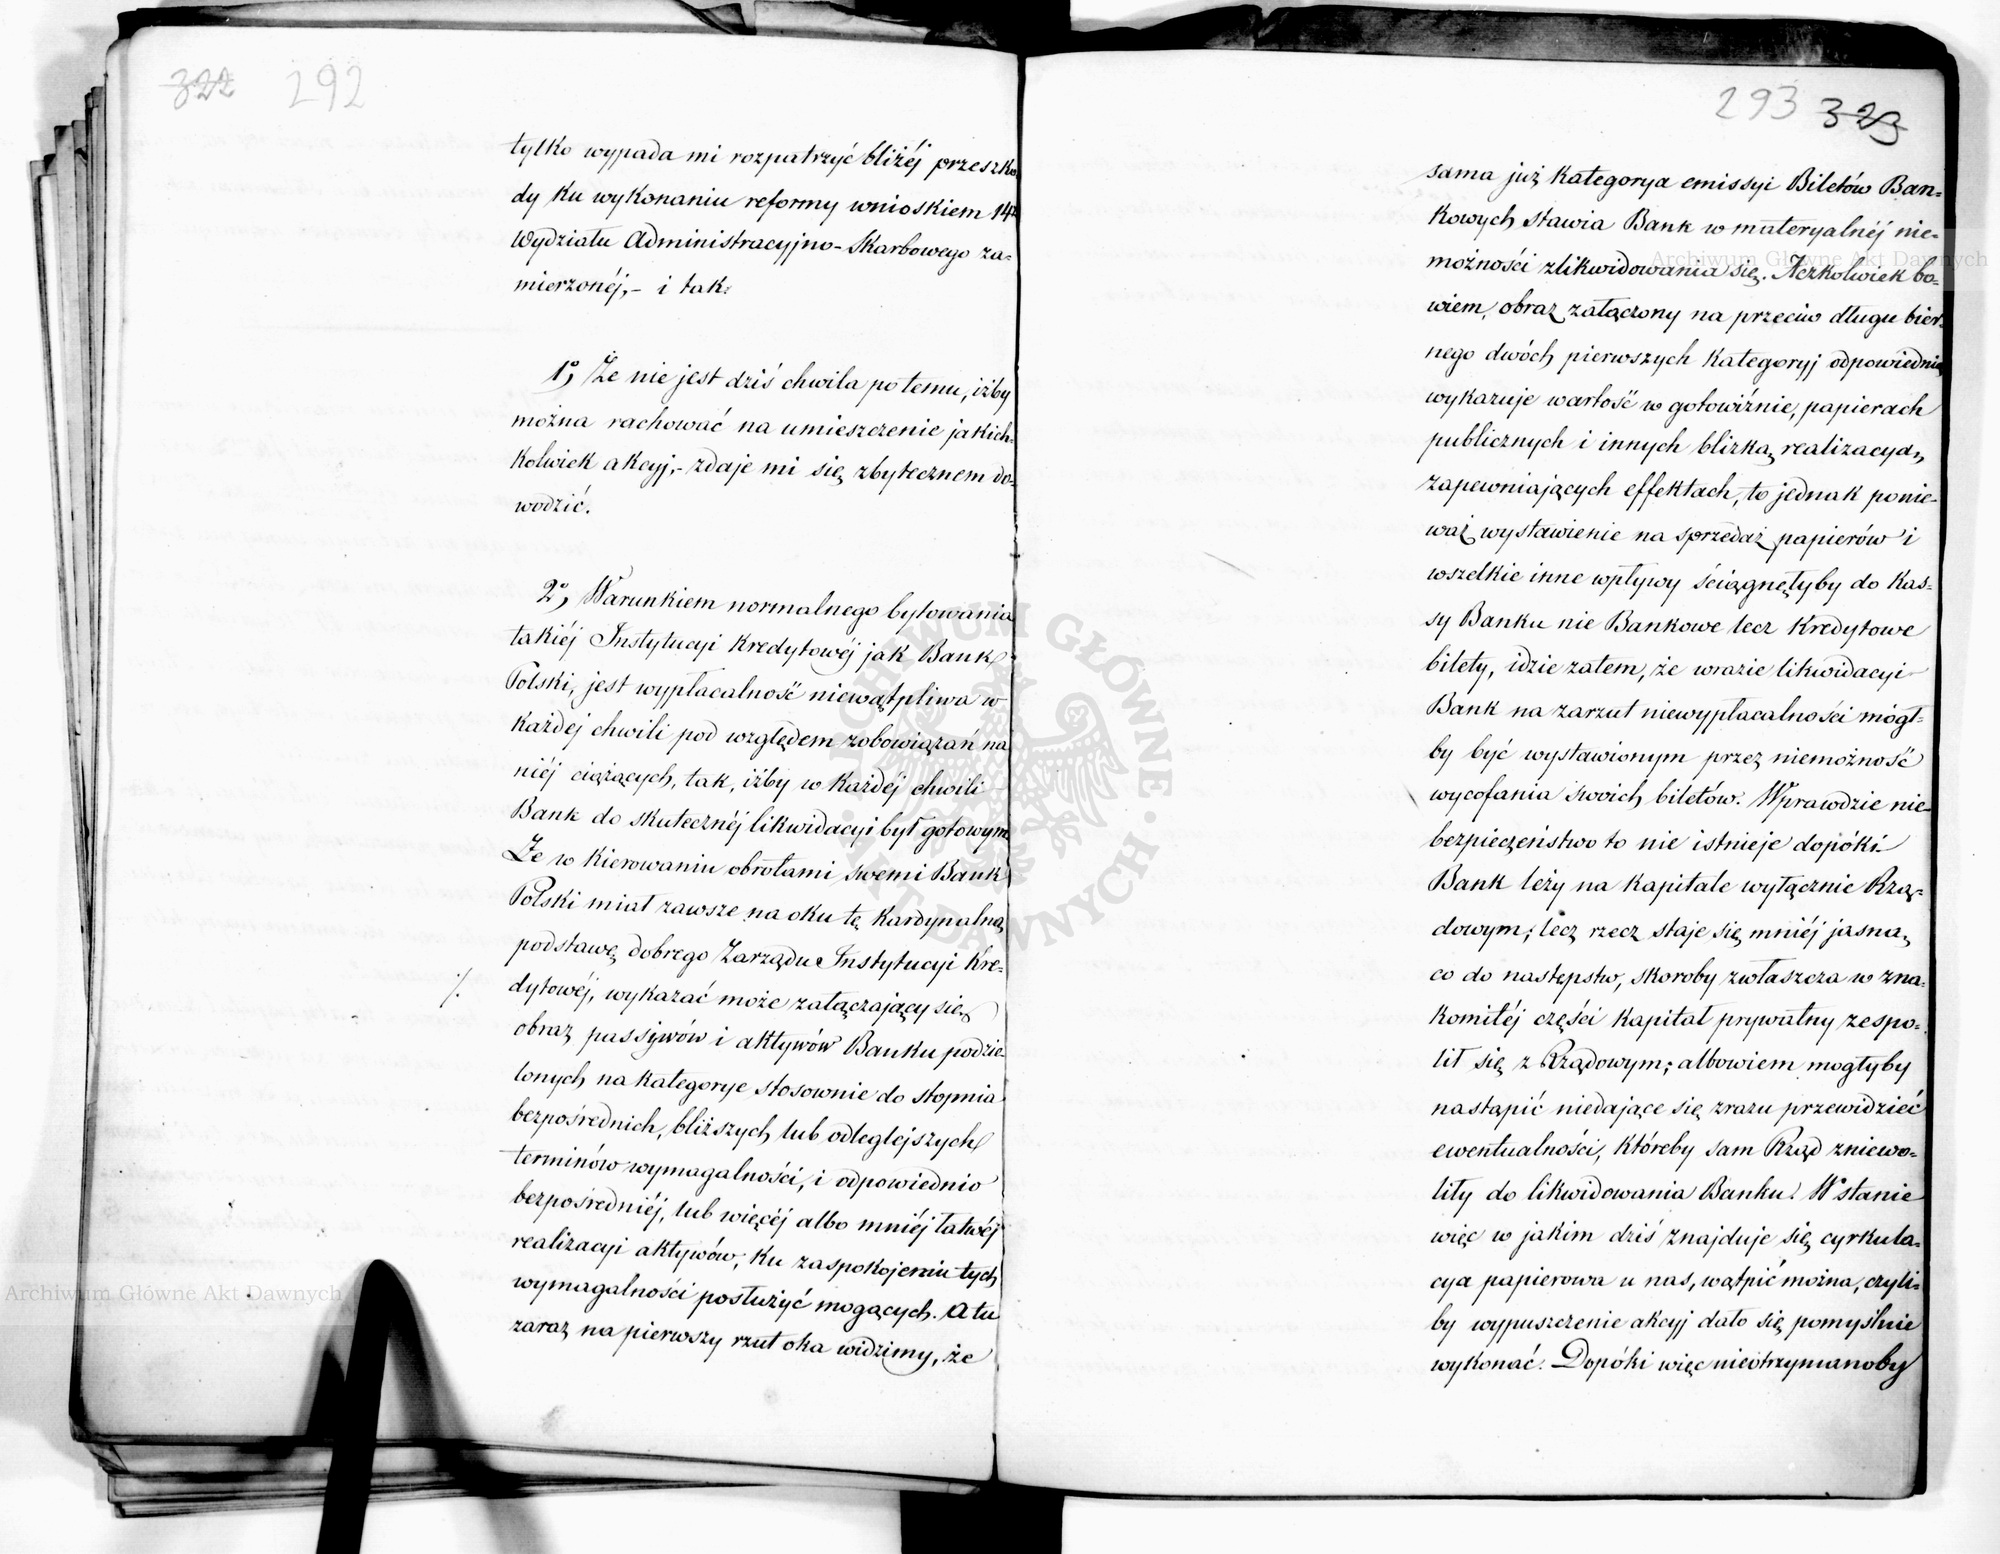 322 292
tylko wypada mi rozpatrzyć bliżéj przeszko
dy ku wykonaniu reformy wnioskiem 14ym
Wydziału Administracyjno-Skarbowego za-
mierzonéj,- i tak:
1º, Że nie jest dziś chwila po temu, iżby
można rachować na umieszczenie jakich-
kolwiek akcyj,- zdaje mi się zbytecznem do-
wodzić.
2º, Warunkiem normalnego bytowania
takiéj Instytucyi kredytowéj jak Bank
Polski, jest wypłacalność niewątpliwa w
każdej chwili pod względem zobowiązań na
niéj ciążących, tak, iżby w każdéj chwili
Bank do skutecznéj likwidacyi był gotowym.
Że w kierowaniu obrotami swemi Bank
Polski miał zawsze na oku tę kardynalną
podstawę dobrego Zarządu Instytucyi Kre-
dytowéj, wykazać może załączający się
·/.
obraz passywów i aktywów Banku podzie-
lonych na kategorye stosownie do stopnia
bezpośrednich, bliższych lub odleglejszych
terminów wymagalności, i odpowiednio
bezpośredniéj, lub więcéj albo mniéj łatwéj
realizacyi aktywów, ku zaspokojeniu tych
wymagalności posłużyć mogących. A tu
zaraz na pierwszy rzut oka widzimy, że
293 323
sama już kategorya emissyi Biletów Ban-
kowych stawia Bank w materyalnéj nie-
możności zlikwidowania się. Aczkolwiek bo-
wiem, obraz załączony na przeciw długu bier-
nego dwóch pierwszych kategoryj odpowiednią
wykazuje wartość w gotowiźnie, papierach
publicznych i innych blizką realizacyą
zapewniających effektach, to jednak ponie-
waż wystawienie na sprzedaż papierów i
wszelkie inne wpływy ściągnęłyby do kas-
sy Banku nie Bankowe lecz Kredytowe
bilety, idzie zatem, że w razie likwidacyi
Bank na zarzut niewypłacalności mógł-
by być wystawionym przez niemożność
wycofania swoich biletów. Wprawdzie nie-
bezpieczeństwo to nie istnieje dopóki
Bank leży na kapitale wyłącznie Rzą-
dowym; lecz rzecz staje się mniéj jasną
co do następstw, skoroby zwłaszcza w zna-
komitéj części kapitał prywatny zespo-
lił się z Rządowym; albowiem mogłyby
nastąpić niedające się zrazu przewidzieć
ewentualności, któreby sam Rząd zniewo-
liły do likwidowania Banku. W stanie
więc w jakim dziś znajduje się cyrkula-
cya papierowa u nas, wątpić można, czyli-
by wypuszczenie akcyj dało się pomyślnie
wykonać. Dopóki więc nieotrzymanoby
Archiwum Główne Akt Dawnych
Archiwum Główne Akt Dawnych
ARCHIWUM GŁÓWNE · AKT DAWNYCH ·